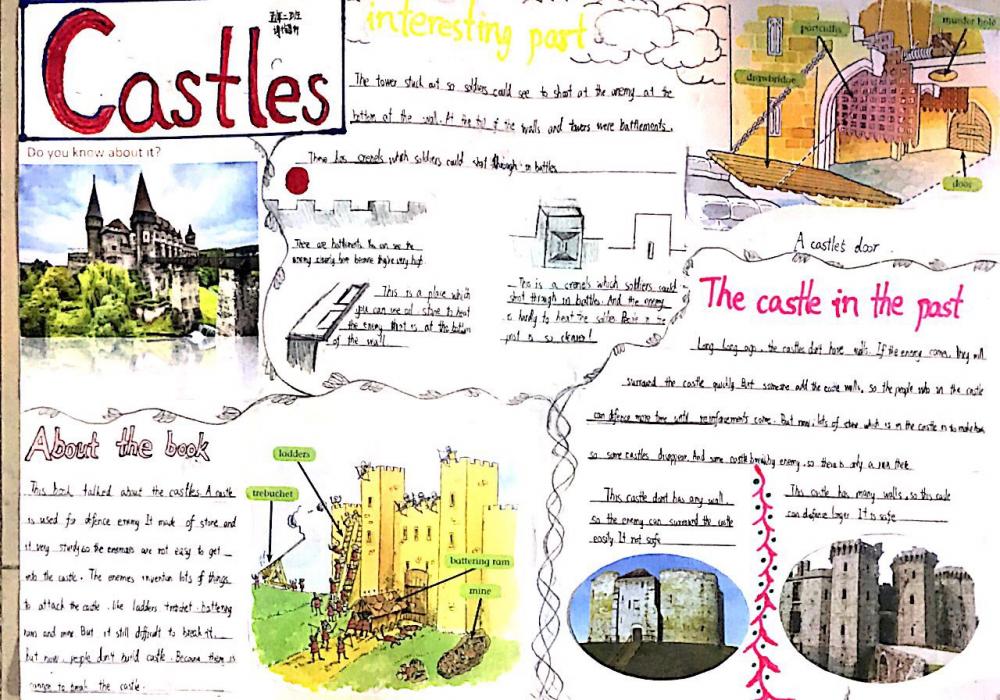 Castles
五年二班
Do you know about it?
interesting past
The tower stuck out so soldiers could see to shoot at the enemy at the
bottom of the wall. At the top of the walls and towers were battlements.
There has crenels which soldiers could shot through in battles
There are battlements. You can see the
enemy clearly here because they're very high.
This is a place which
you can use oil, stone to heat
the enemy that is at the bottom
of the wall
This is a crenels which soldiers could
shot through in battles. And the enemy
is hardly to heat the soldies. People in the
past is so cleaver!
portcullis
murder hole
drawbridge
door
A castle's door.
The castle in the past
Long long ago, the castles don't have walls. If the enemy come, they will
surround the castle quickly. But someone add the castle walls, so the people who in the castle
can defence more time until reinforcements come. But now, lots of stone which is in the castle is to make
so some castles disappear. And some castle break by enemy, so there is only a
This castle don't has any wall,
so the enemy can surround the castle
easily. It not safe
This castle has many walls, so this castle
can defence longer. It is safe
About the book
This book talked about the castles. A castle
is used for defence enemy. It made of stone and
it very sturdy so the enemies are not easy to get
into the castle. The enemies invention lots of things
to attack the castle. like ladders battering
rams and mine. But it still difficult to break it.
but now, people don't build castle. Because there is
to break the castle.
ladders
trebuchet
battering ram
mine